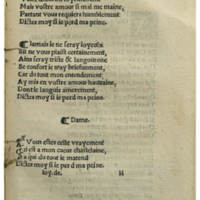 Mais vostre amour si mal me maine,
Partant vous requiers humblement
Dictes moy si ie perd ma peine.
Iamais ie ne seray ioyeux
Si ne vous plaist certainement,
Ains seray triste &
Se confort ie nay briefuement,
Car du tout mon entendement
Ay mis en vostre amour haultain,
Dont ie languis amerement,
Dictes moy si ie perd ma peine.
¶ Dame.
Vous estes celle vrayement
Qui est a mon cueur chastelaine,
qui du tout ie mattend
Dictes moy si ie perd ma peine.
ii